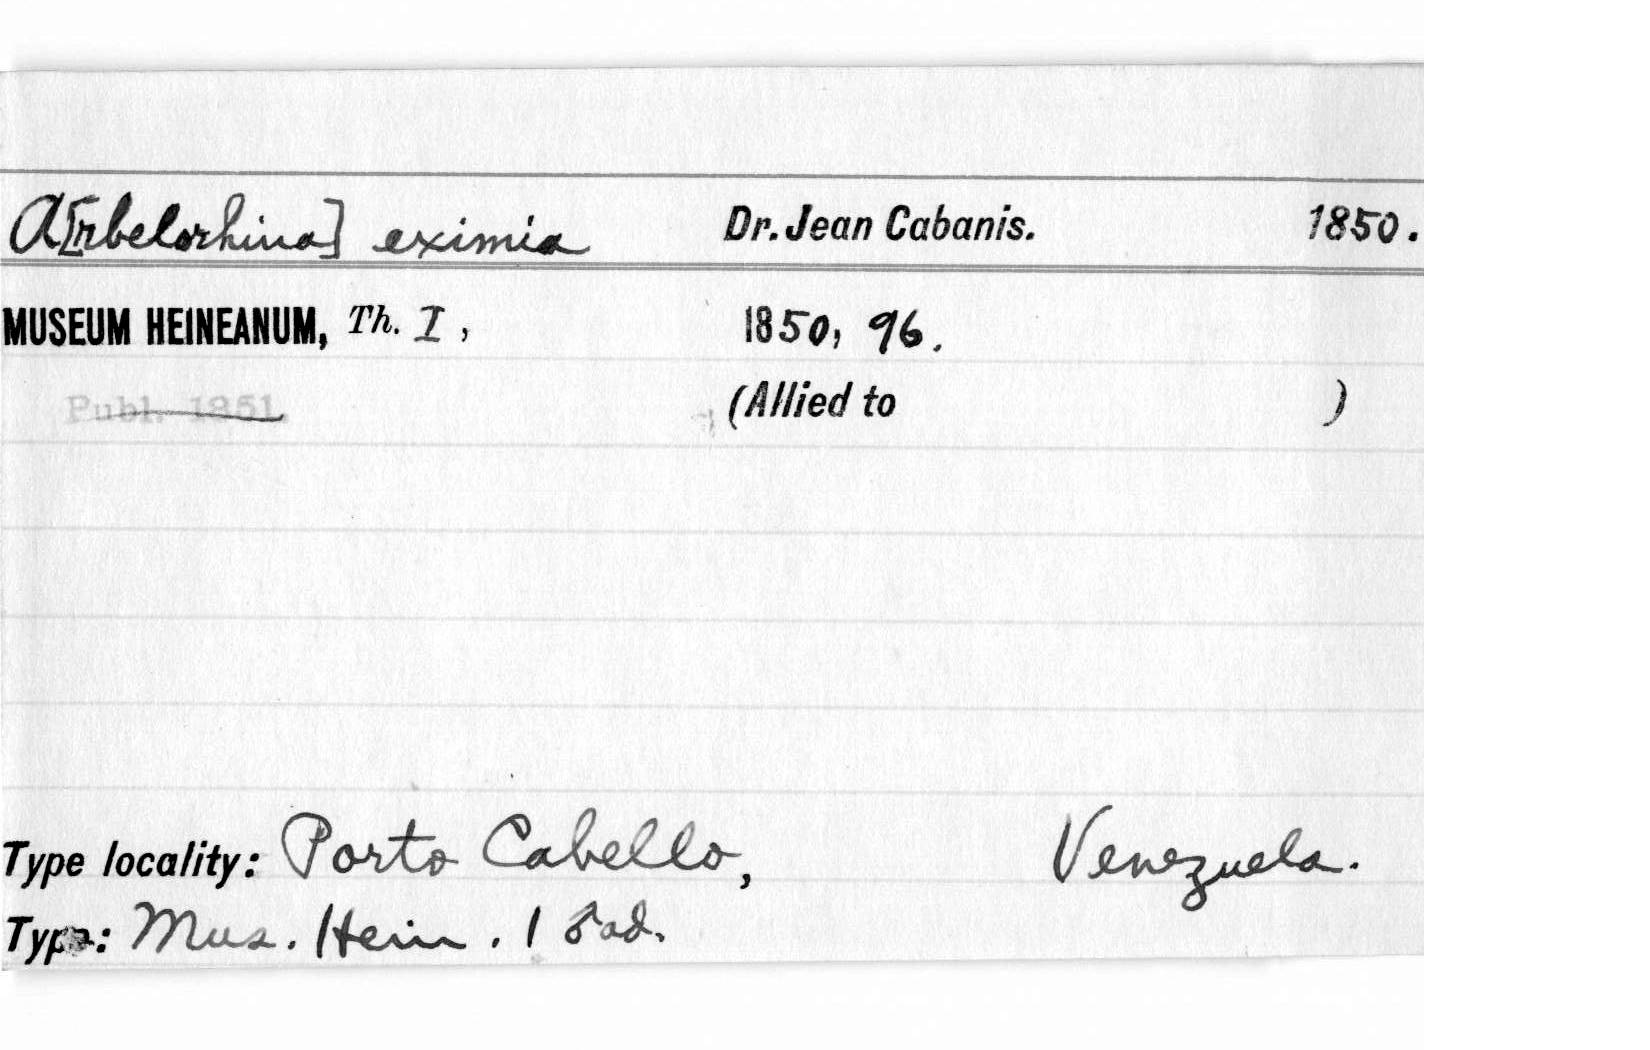 A[rbelorhina] eximia Dr. Jean Cabanis. 1850.
MUSEUM HEINEANUM, Th. I, 1850, 96.
Publ. 1851. (Allied to )
Type locality: Porto Cabello, Venezuela.
Type: Mus. Hein. 1 ♂ad.